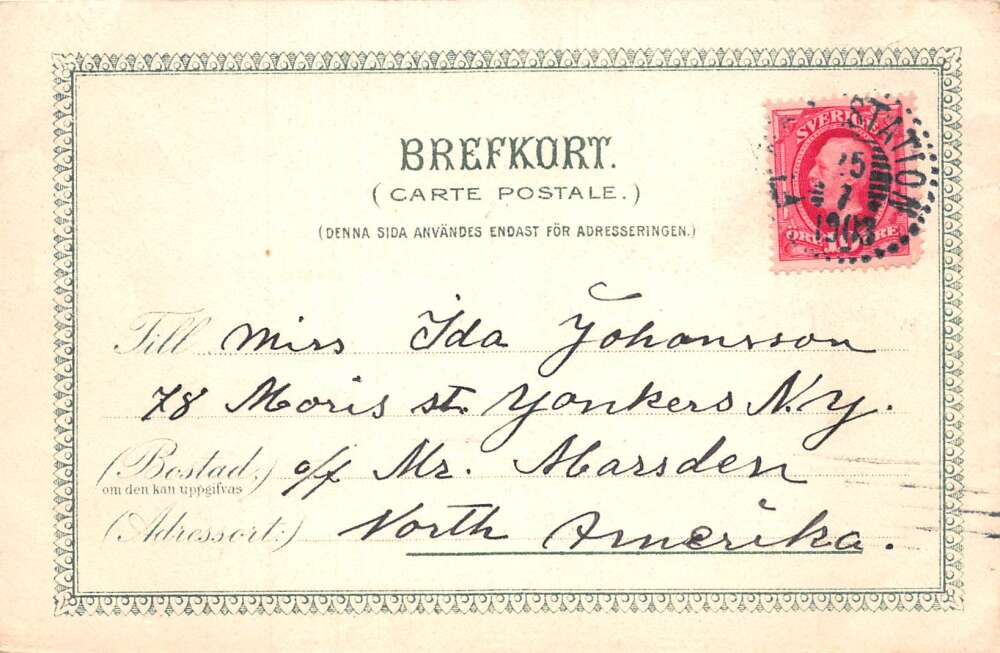 BREFKORT.
(CARTE POSTALE.)
(DENNA SIDA ANVÄNDES ENDAST FÖR ADRESSERINGEN.)
SVERIGE
STATION
1903
Till Miss Ida Johansson
78 Moris st. Yonkers N.Y.
(Bostad:) c/f Mr. Marsden
om den kan uppgifvas
(Adressort:) North Amerika.